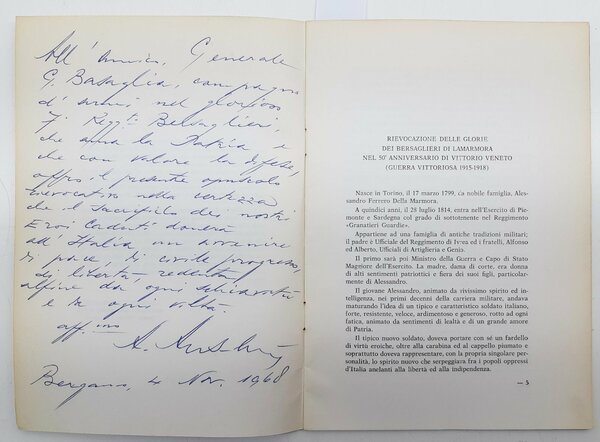 All'amico, Generale
G. Basaglia, compagno
d'armi nel glorioso
7° Regg.ti Bersaglieri,
che ama la Patria e
che con valore la difese,
offro il presente opuscolo
rievocativo nella certezza
che il sacrificio dei nostri
Eroi Caduti donerà
all'Italia un avvenire
di pace, di civile progresso,
di libertà, redenta
alfine da ogni schiavitù
e da ogni viltà.
aff.mo
A.
Bergamo, 4 Nov. 1968
RIEVOCAZIONE DELLE GLORIE
DEI BERSAGLIERI DI LAMARMORA
NEL 50° ANNIVERSARIO DI VITTORIO VENETO
(GUERRA VITTORIOSA 1915-1918)
Nasce in Torino, il 17 marzo 1799, da nobile famiglia, Ales-
sandro Ferrero Della Marmora.
A quindici anni, il 28 luglio 1814, entra nell'Esercito di Pie-
monte e Sardegna col grado di sottotenente nel Reggimento
«Granatieri Guardie».
Appartiene ad una famiglia di antiche tradizioni militari;
il padre e Ufficiale del Reggimento di Ivrea ed i fratelli, Alfonso
ed Alberto, Ufficiali di Artiglieria e Genio.
Il primo sarà poi Ministro della Guerra e Capo di Stato
Maggiore dell'Esercito. La madre, dama di corte, era donna
di alti sentimenti patriottici e fiera dei suoi figli, particolarmente
di Alessandro.
Il giovane Alessandro, animato da vivissimo spirito ed in-
telligenza, nei primi decenni della carriera militare, andava
maturando l'idea di un tipico e caratteristico soldato italiano,
forte, resistente, veloce, ardimentoso e generoso, rotto ad ogni
fatica, animato da sentimenti di lealtà e di un grande amore
di Patria.
Il tipico nuovo soldato, doveva portare con sé un fardello
di virtù eroiche, oltre alla carabina ed al cappello piumato e
soprattutto doveva rappresentare, con la propria singolare per-
sonalità, lo spirito nuovo che serpeggiava fra i popoli oppressi
d'Italia anelanti alla libertà ed alla indipendenza.
— 5